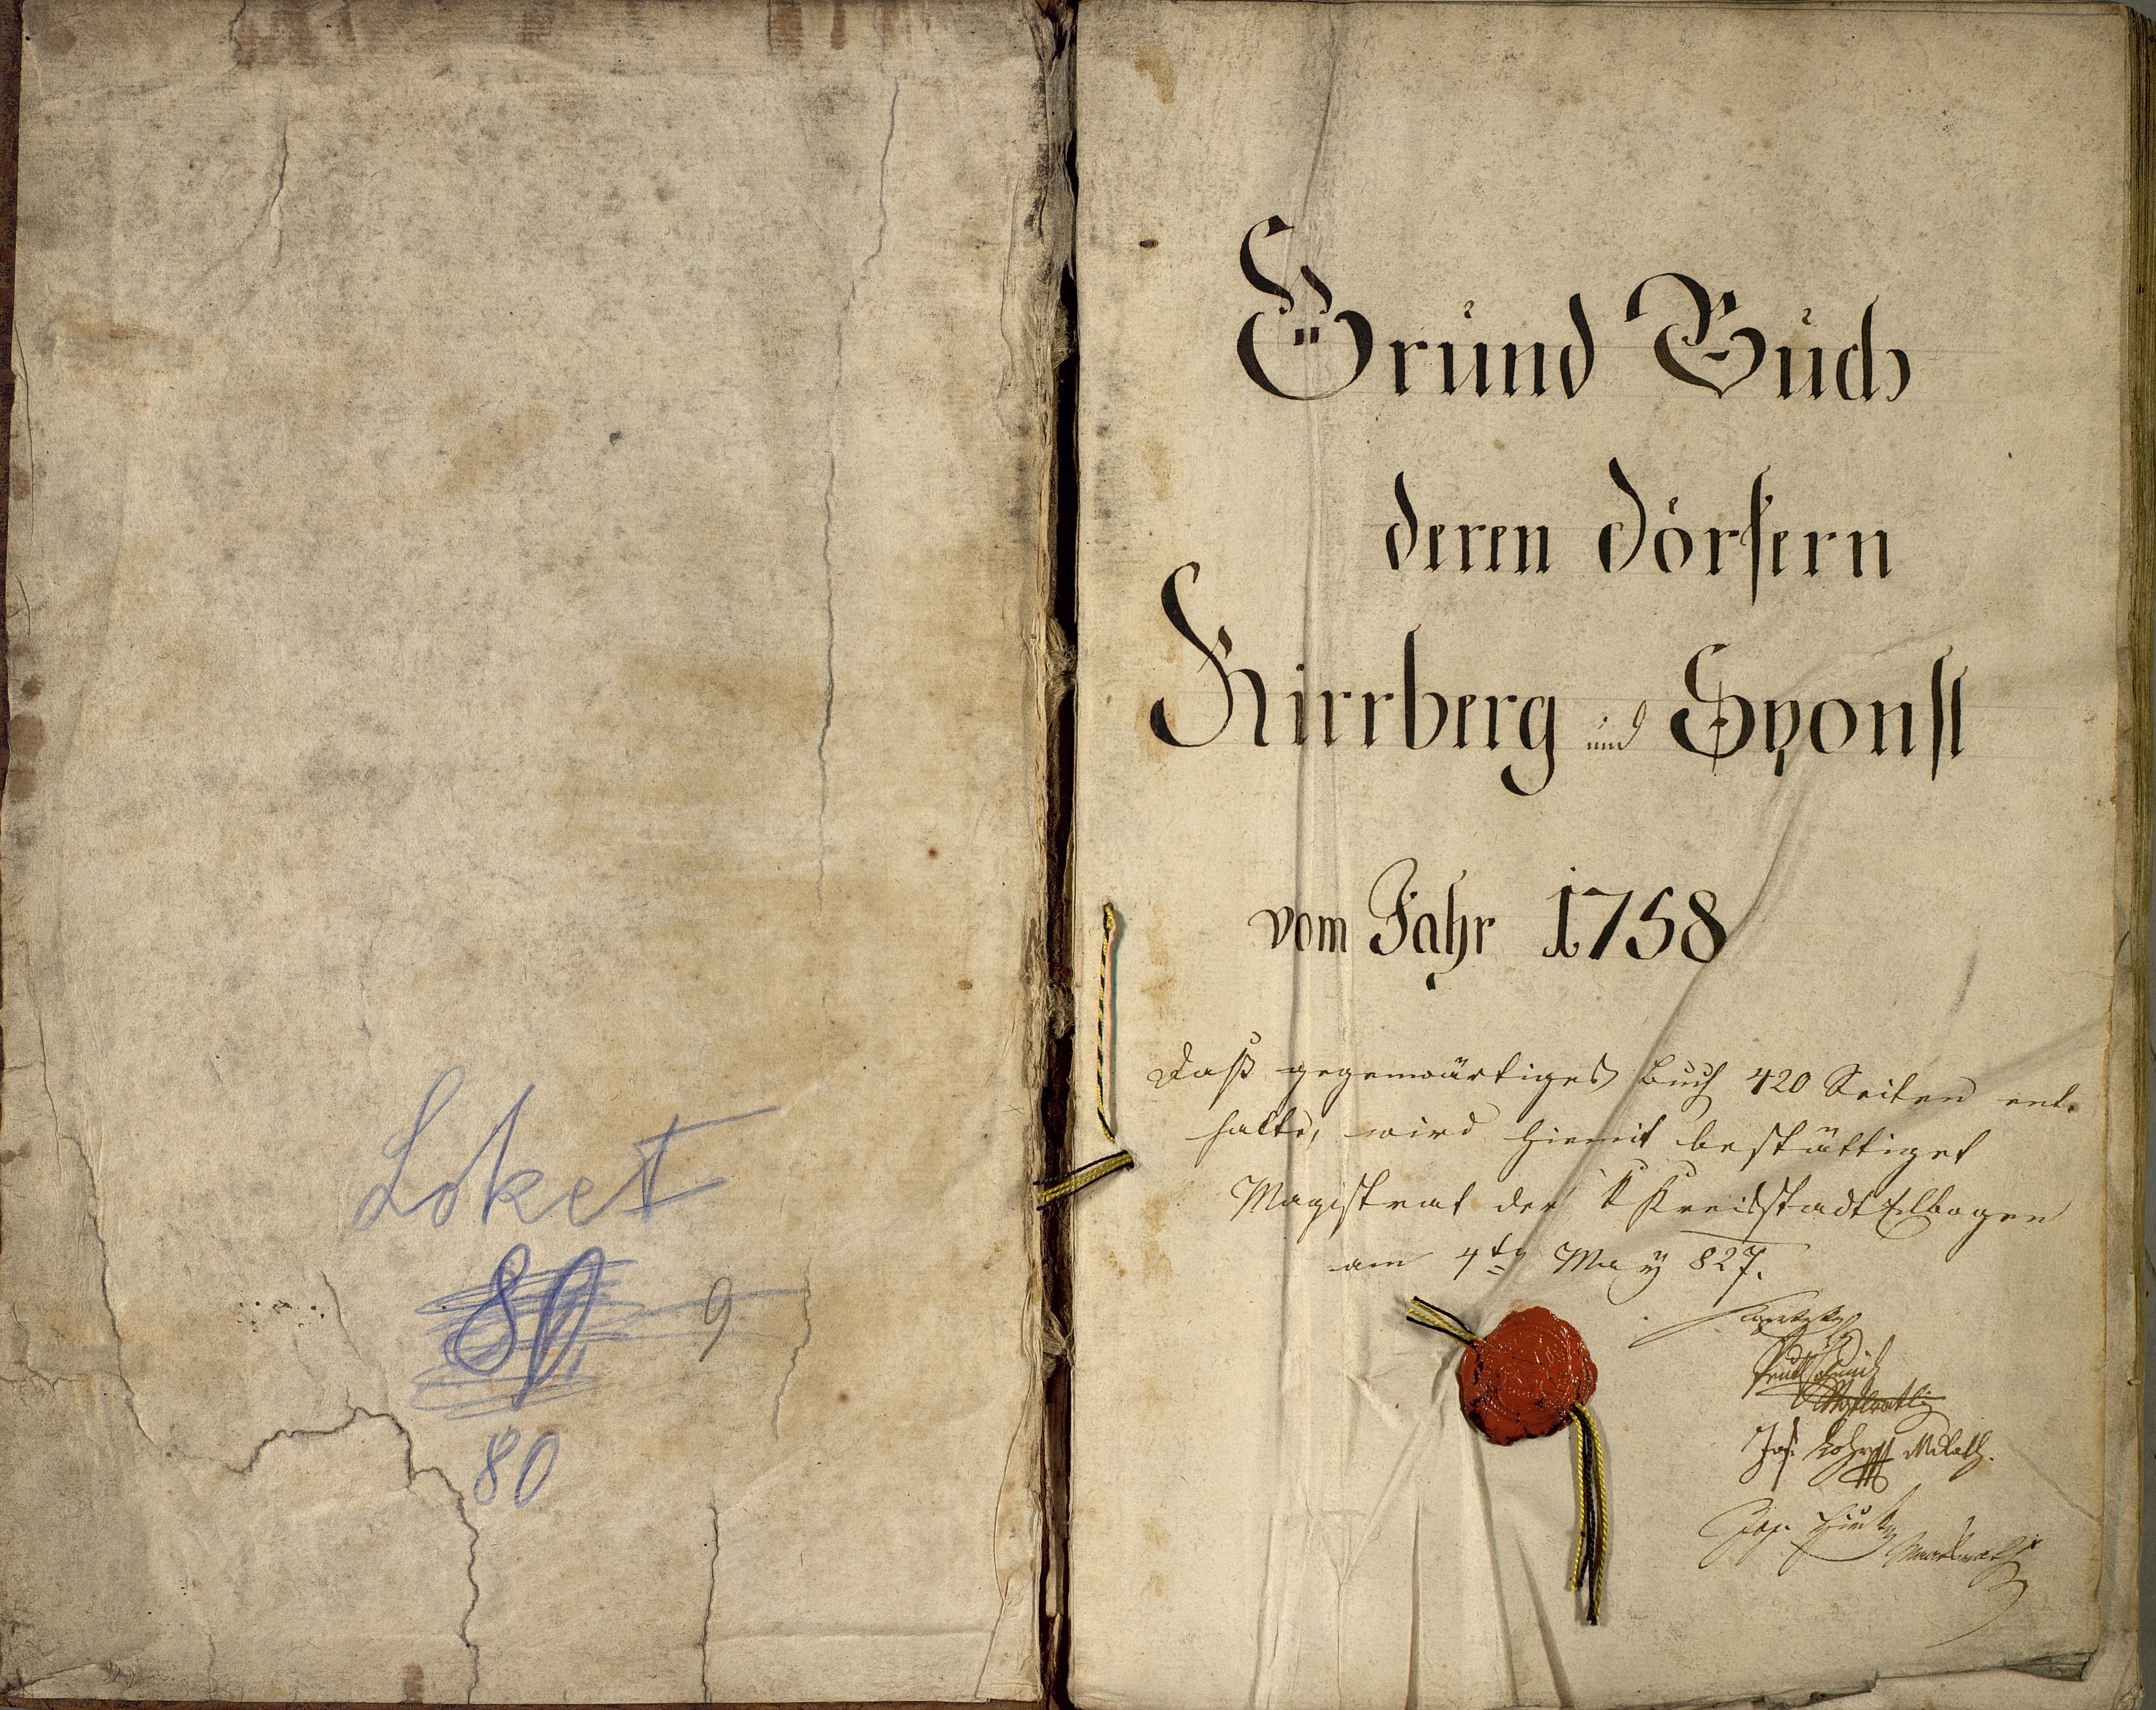 Loket
80 9
80
Grund Buch
deren Dörfern
Kirrberg und Sponsl
vom Jahr 1758
Daß gegenwärtiges Buch 420 Seiten ent-
halte, wird hiemit bestättiget
Magistrat der K Kreisstadt Elbogen
am 4ten May 827.
Jos. MRath.
Jos.